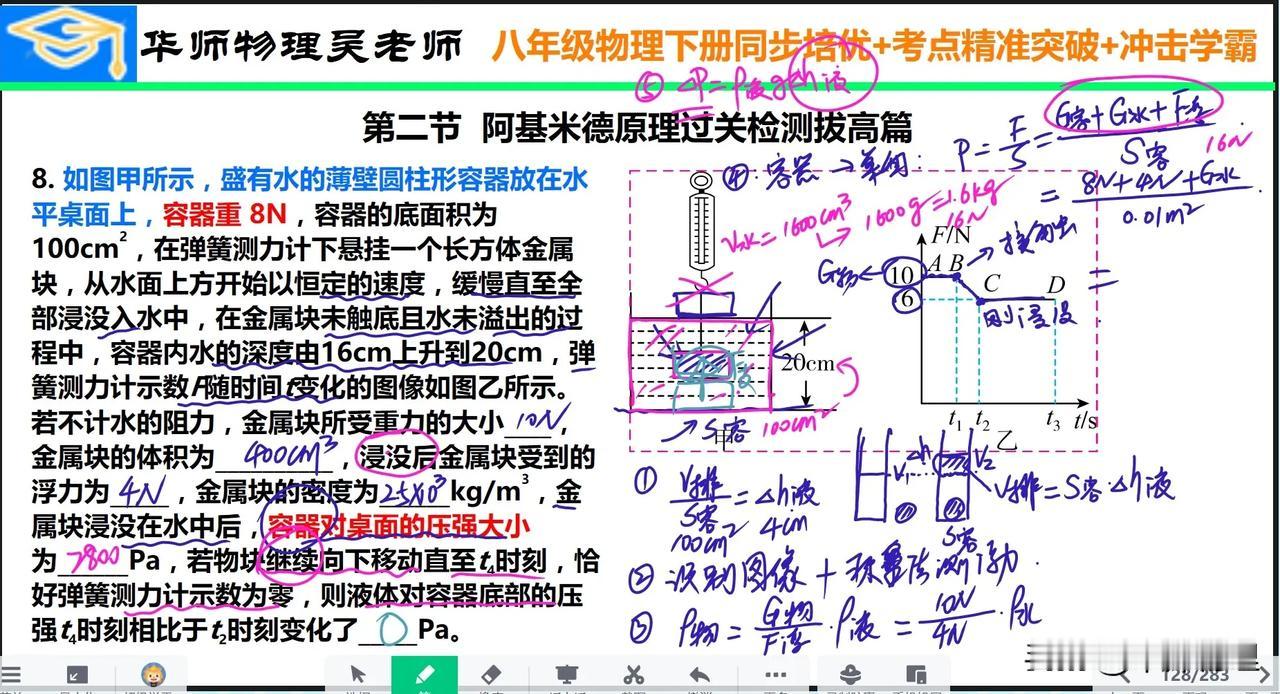 华师物理吴老师
八年级物理下册同步培优+考点精准突破+冲击学霸
⑤ ΔP=ρ液gΔh液
第二节 阿基米德原理过关检测拔高篇
8. 如图甲所示，盛有水的薄壁圆柱形容器放在水
平桌面上，容器重 8N，容器的底面积为
100cm²，在弹簧测力计下悬挂一个长方体金属
块，从水面上方开始以恒定的速度，缓慢直至全
部浸没入水中，在金属块未触底且水未溢出的过
程中，容器内水的深度由16cm上升到20cm，弹
簧测力计示数F随时间t变化的图像如图乙所示。
若不计水的阻力，金属块所受重力的大小 10N ，
金属块的体积为 400cm³ ，浸没后金属块受到的
浮力为 4N ，金属块的密度为 2.5×10³ kg/m³，金
属块浸没在水中后，容器对桌面的压强大小
为 2800 Pa，若物块继续向下移动直至t₄时刻，恰
好弹簧测力计示数为零，则液体对容器底部的压
强t₄时刻相比于t₂时刻变化了 0 Pa。
④ 容器→桌面：
P=F/S=(G容+G水+F浮)/S容
16N
=(8N+4N+G水)/0.01m²
=
V水=1600cm³
1600g=1.6kg
16N
G物
F/N
10
6
A B
C
D
接触出
刚浸没
t₁ t₂ t₃ t/s
乙
20cm
甲
S容 100cm²
① V排/S容=Δh液
100cm² 4cm
Δh
V₁
V₂
V排=S容·Δh液
S容
② 识别图像+称重法测浮力.
③ ρ物=G物/F浮·ρ液=10N/4N·ρ水
128/283